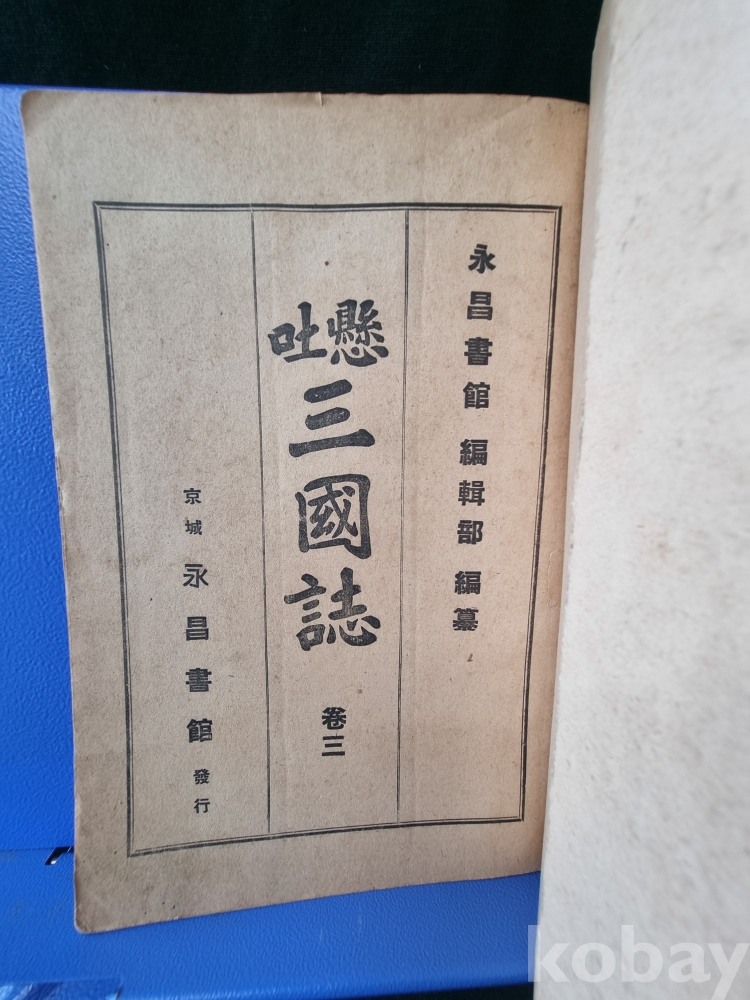 永昌書館 編輯部 編纂
懸吐
三國誌
卷三
京城 永昌書館 發行
kobay